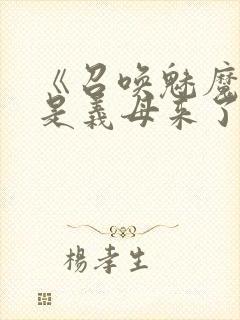 《召唤魅魔
是义母来了
楊孝生